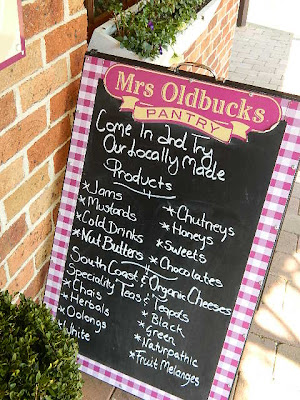 Mrs Oldbucks
PANTRY
Come In and Try
Our Locally Made
Products
* Jams
* Mustards
* Cold Drinks
* Nut Butters
* Chutneys
* Honeys
* Sweets
* Chocolates
South Coast & Organic Cheeses
Speciality Teas & Teapots
* Chais
* Herbals
* Oolongs
* White
* Black
* Green
* Naturpathic
* Fruit Melanges